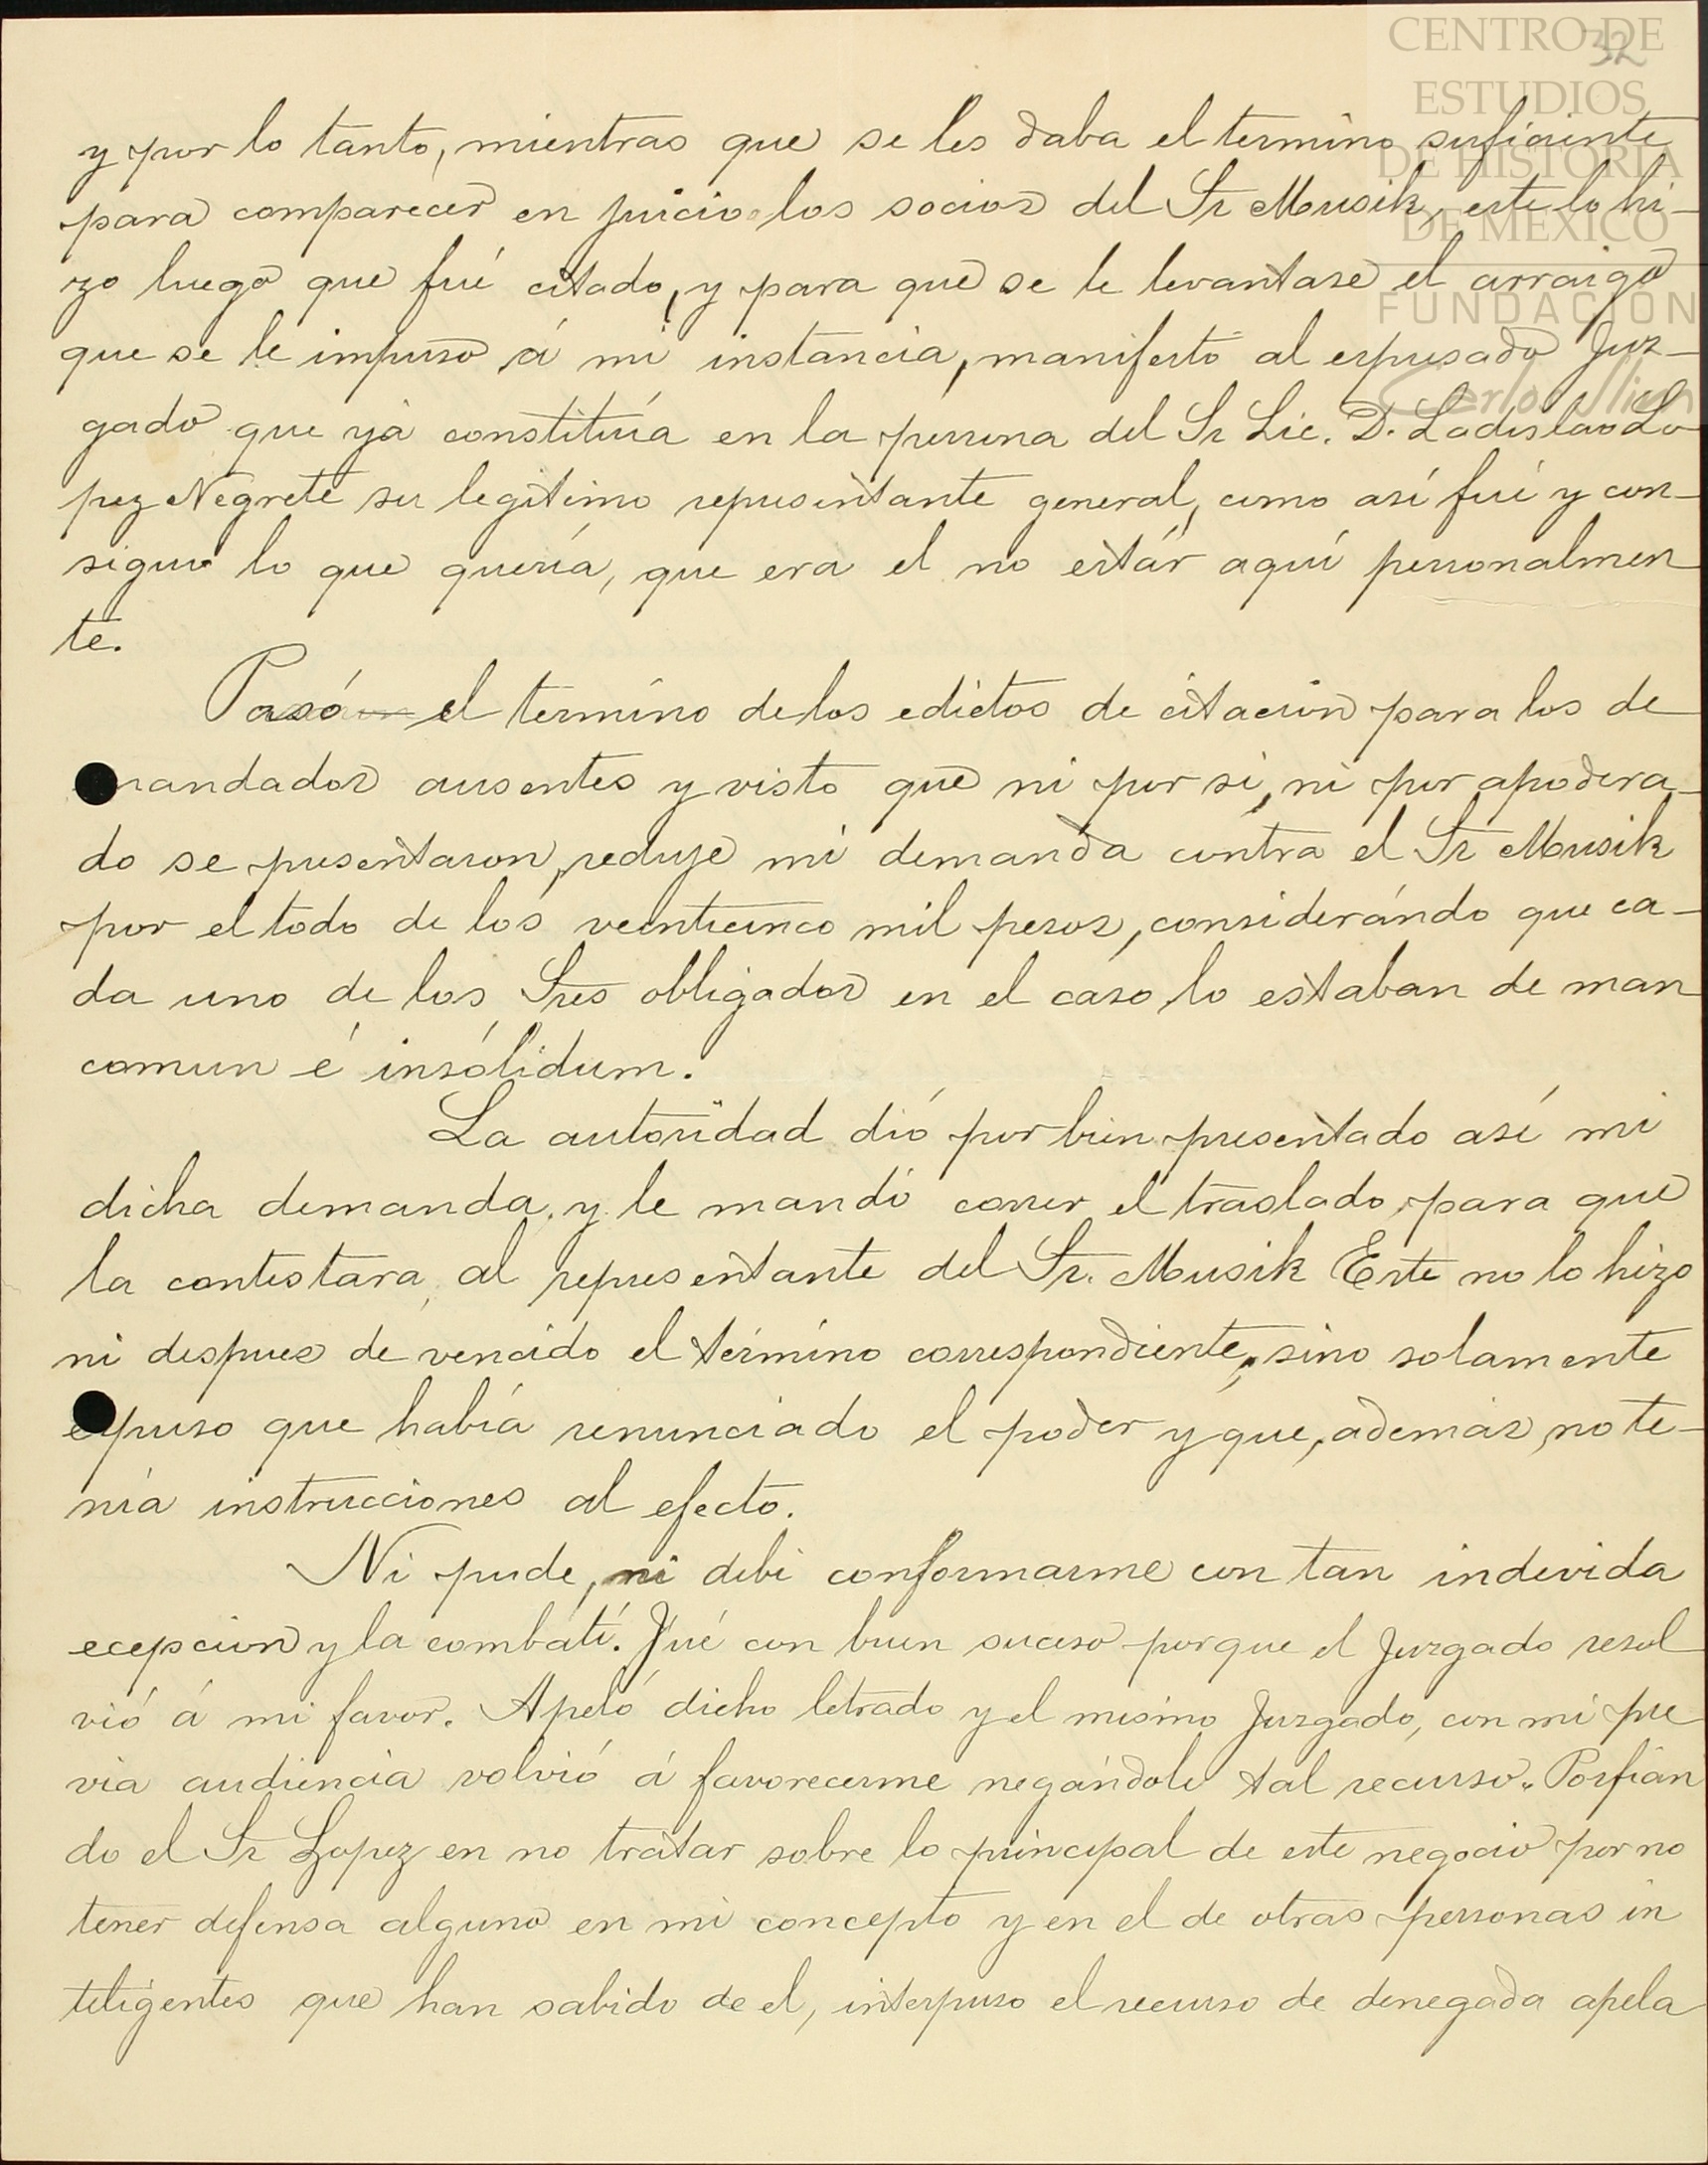 CENTRO DE
32
ESTUDIOS
DE HISTORIA
DE MÉXICO
FUNDACIÓN
Carlos Slim
y por lo tanto, mientras que se les daba el termino suficiente
para comparecer en juicio los socios del Sr Musik, este lo hi-
zo luego que fué citado, y para que se le levantase el arraigo
que se le impuso á mi instancia, manifestó al espresado Juz-
gado que yá constituía en la persona del Sr Lic. D. Ladislao Lo
pez Negrete su legítimo representante general, como así fué y con-
siguió lo que quería, que era el no estár aquí personalmen
te.
Pasó el término de los edictos de citacion para los de
mandados ausentes y visto que ni por si, ni por apodera-
do se presentaron, reduje mi demanda contra el Sr Musik
por el todo de los veinticinco mil pesos, considerándo que ca-
da uno de los Sres obligados en el caso, lo estaban de man
comun é insólidum.
La autoridad dió por bien presentado así mi
dicha demanda, y le mandó correr el traslado, para que
la contestara, al representante del Sr. Musik Este no lo hizo
ni despues de vencido el término correspondiente, sino solamente
espuso que había renunciado el poder y que, además, no te-
nía instrucciones al efecto.
Ni pude, ni debi conformarme con tan indevida
ecepcion y la combatí. Fué con buen suceso porque el Juzgado resol
vió á mi favor. Apeló dicho letrado y el mismo Juzgado, con mi pre
via audiencia volvió á favorecerme negándole tal recurso. Porfian
do el Sr Lopez en no tratar sobre lo principal de este negocio por no
tener defensa alguna en mi concepto y en el de otras personas in
teligentes que han sabido de el, interpuso el recurso de denegada apela